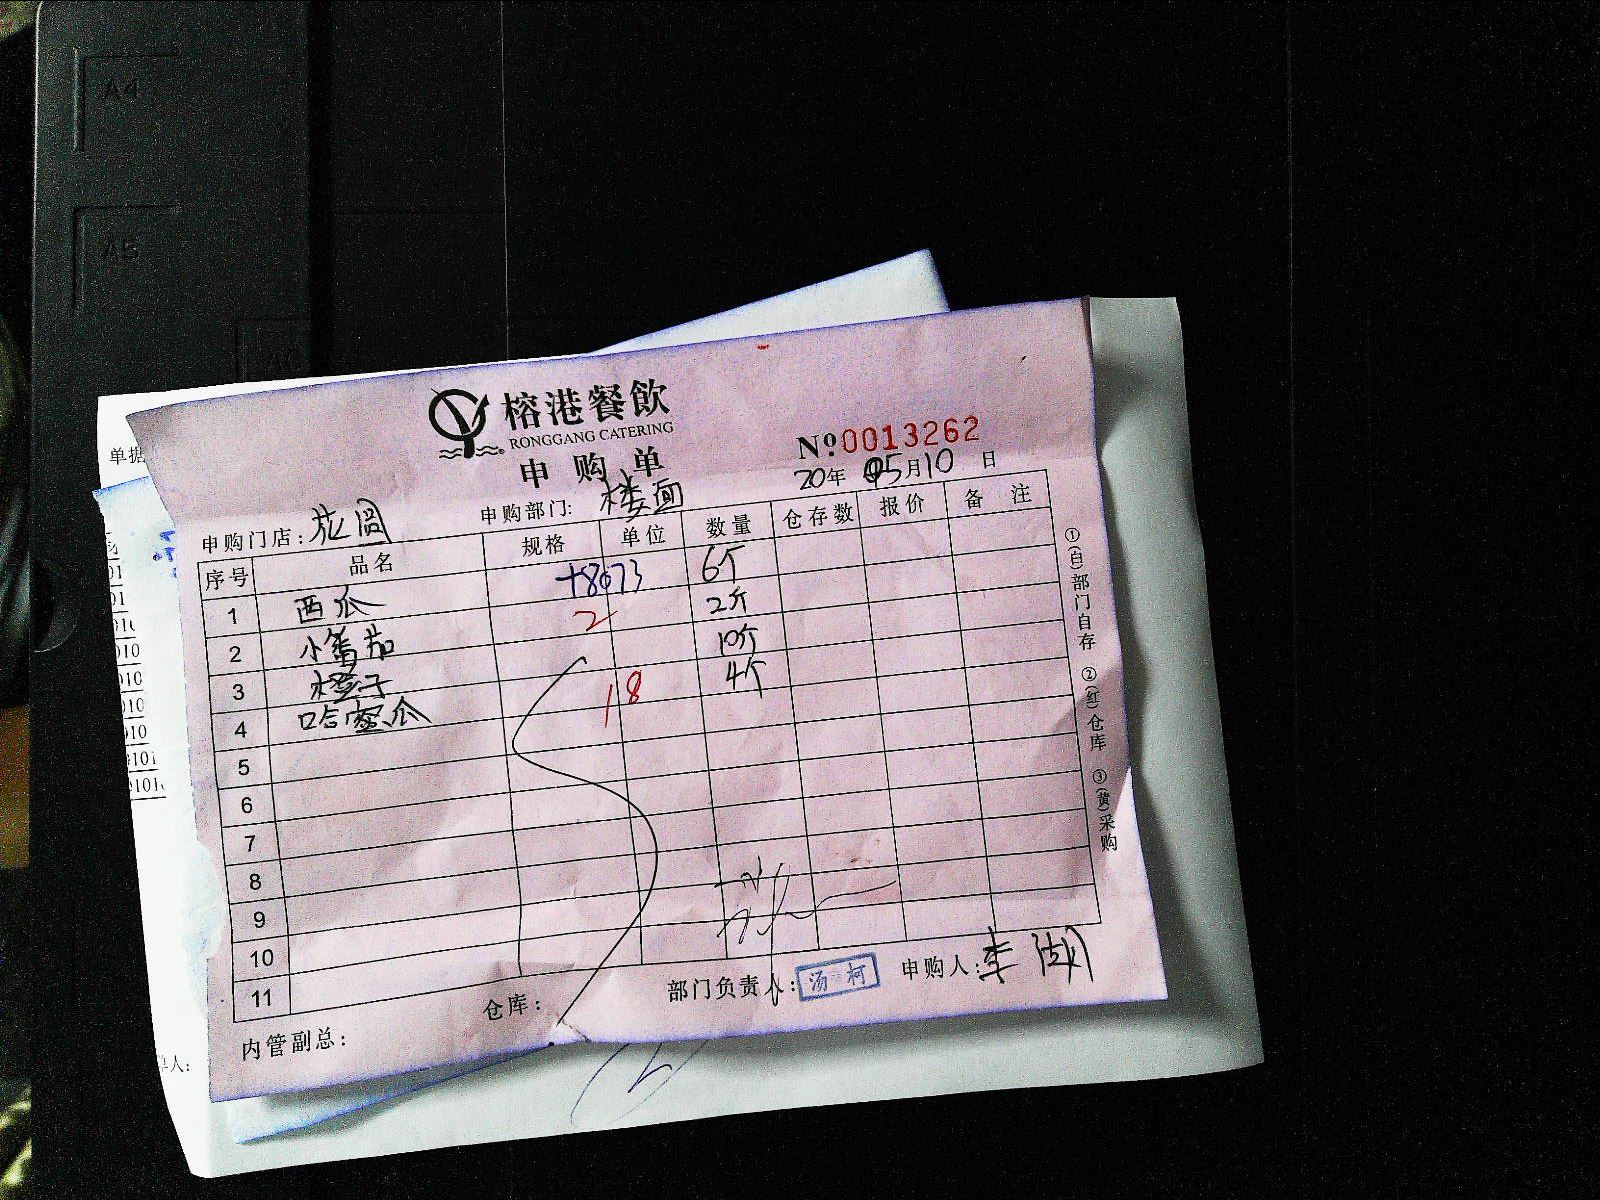 A4
A5
A6
榕港餐飲
RONGGANG CATERING
申购单
№0013262
单据
20年 05月10日
申购门店: 花园 申购部门: 楼面
序号 品名 规格 单位 数量 仓存数 报价 备注
1 西瓜 +8073 6个
2 小番茄 2 2斤
3 橙子 10斤
4 哈蜜瓜 18 4个
5
6
7
8
9
10
11
①(白)部门自存 ②(红)仓库 ③(黄)采购
内管副总: 仓库: 部门负责人: 汤柯 申购人: 李湖